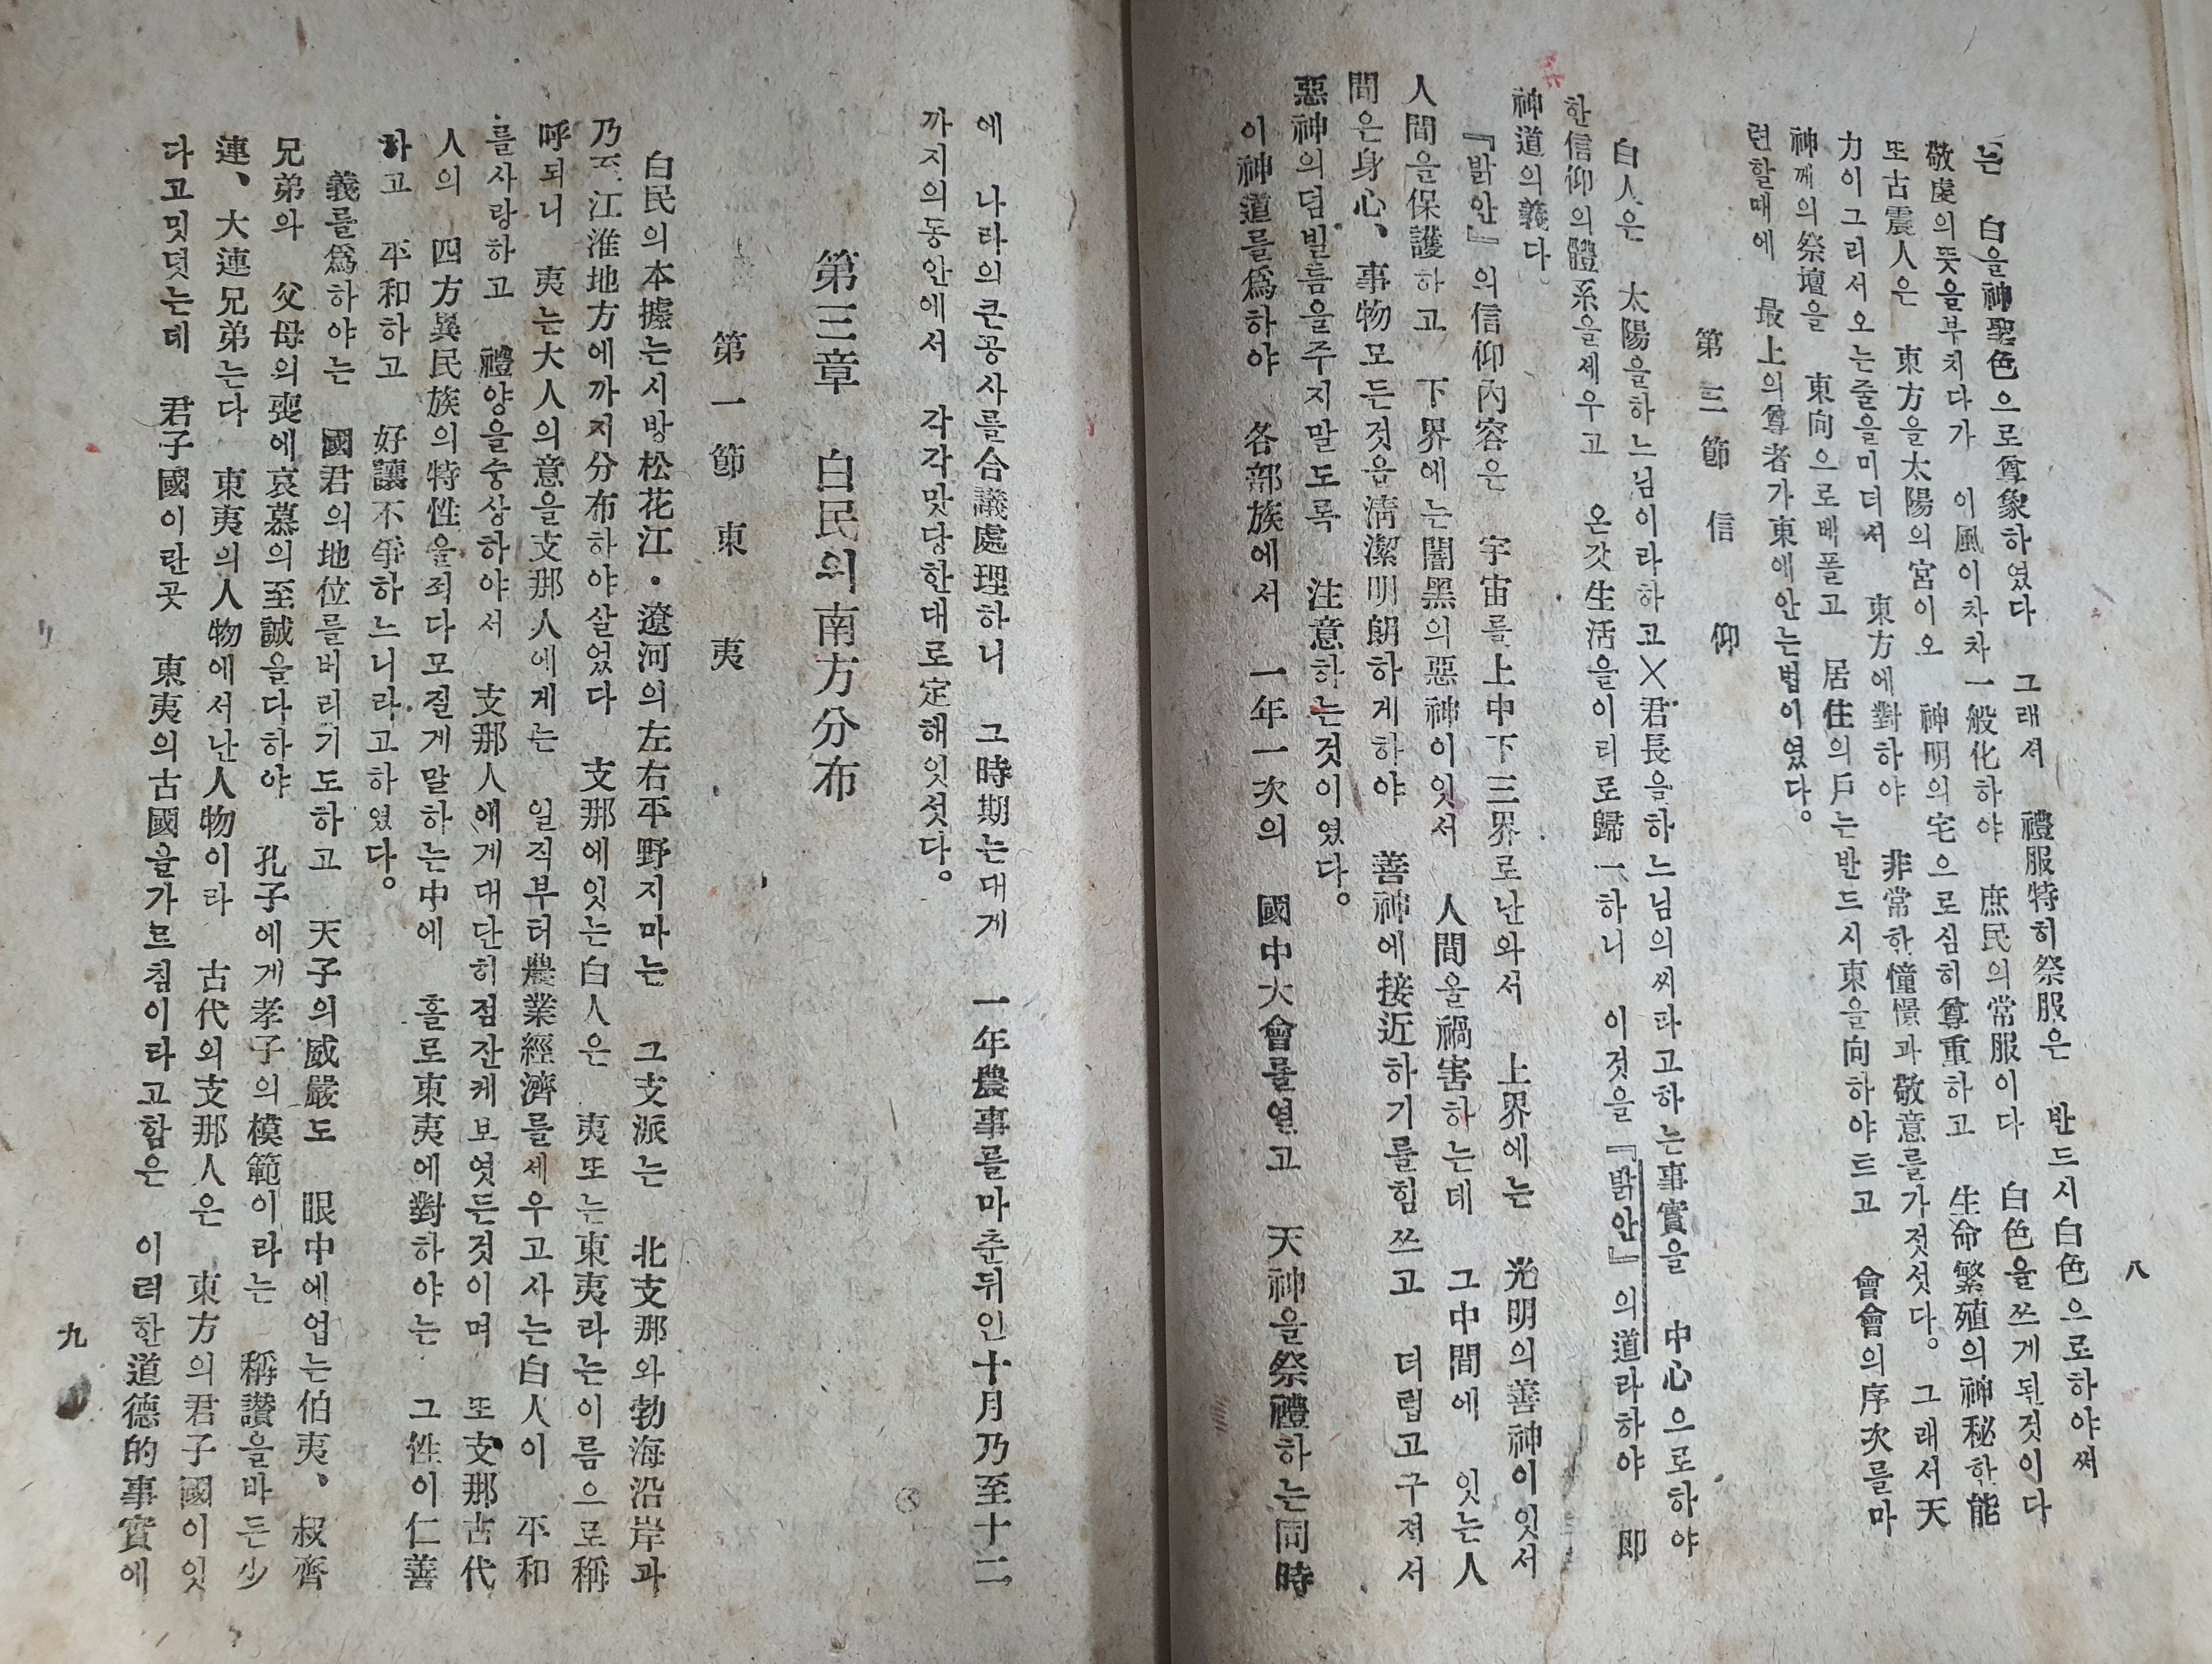 八
는 白을神聖色으로尊象하였다 그래서 禮服特히祭服은 반드시白色으로하야써
敬虔의뜻을부치다가 이風이차차一般化하야 庶民의常服이다 白色을쓰게된것이다
또古震人은 東方을太陽의宮이오 神明의宅으로심히尊重하고 生命繁殖의神秘한能
力이그리서오는줄을미더서 東方에對하야 非常한憧憬과敬意를가젓섯다。 그래서天
神께의祭壇을 東向으로베풀고 居住의戶는반드시東을向하야트고 會會의序次를마
련할때에 最上의尊者가東에안는법이였다。
第三節 信 仰
白人은 太陽을하느님이라하고×君長을하느님의씨라고하는事實을 中心으로하야
한信仰의體系을세우고 온갓生活을이리로歸一하니 이것을『밝안』의道라하야 即
神道의義다。
『밝안』의信仰內容은 宇宙를上中下三界로난와서 上界에는 光明의善神이잇서
人間을保護하고 下界에는闇黑의惡神이잇서 人間을禍害하는데 그中間에 잇는人
間은身心、事物모든것을淸潔明朗하게하야 善神에接近하기를힘쓰고 더럽고구저서
惡神의덤빌틈을주지말도록 注意하는것이였다。
이神道를爲하야 各部族에서 一年一次의 國中大會를열고 天神을祭禮하는同時
에 나라의큰공사를合議處理하니 그時期는대게 一年農事를마춘뒤인十月乃至十二
까지의동안에서 각각맛당한대로定해잇섯다。
第三章 白民의南方分布
第一節 東 夷
白民의本據는시방松花江・遼河의左右平野지마는 그支派는 北支那와勃海沿岸과
乃至江淮地方에까지分布하야살었다 支那에잇는白人은 夷또는東夷라는이름으로稱
呼되니 夷는大人의意을支那人에게는 일직부터農業經濟를세우고사는白人이 平和
를사랑하고 禮양을숭상하야서 支那人애게대단히점잔케보엿든것이며 또支那古代
人의 四方異民族의特性을죄다모질게말하는中에 홀로東夷에對하야는 그性이仁善
하고 平和하고 好讓不爭하느니라고하였다。
義를爲하야는 國君의地位를버리기도하고 天子의威嚴도 眼中에업는伯夷、叔齊
兄弟와 父母의喪에哀慕의至誠을다하야 孔子에게孝子의模範이라는 稱讚을바든少
連、大連兄弟는다 東夷의人物에서난人物이라 古代의支那人은 東方의君子國이잇
다고밋덧는데 君子國이란곳 東夷의古國을가르침이라고함은 이러한道德的事實에
九